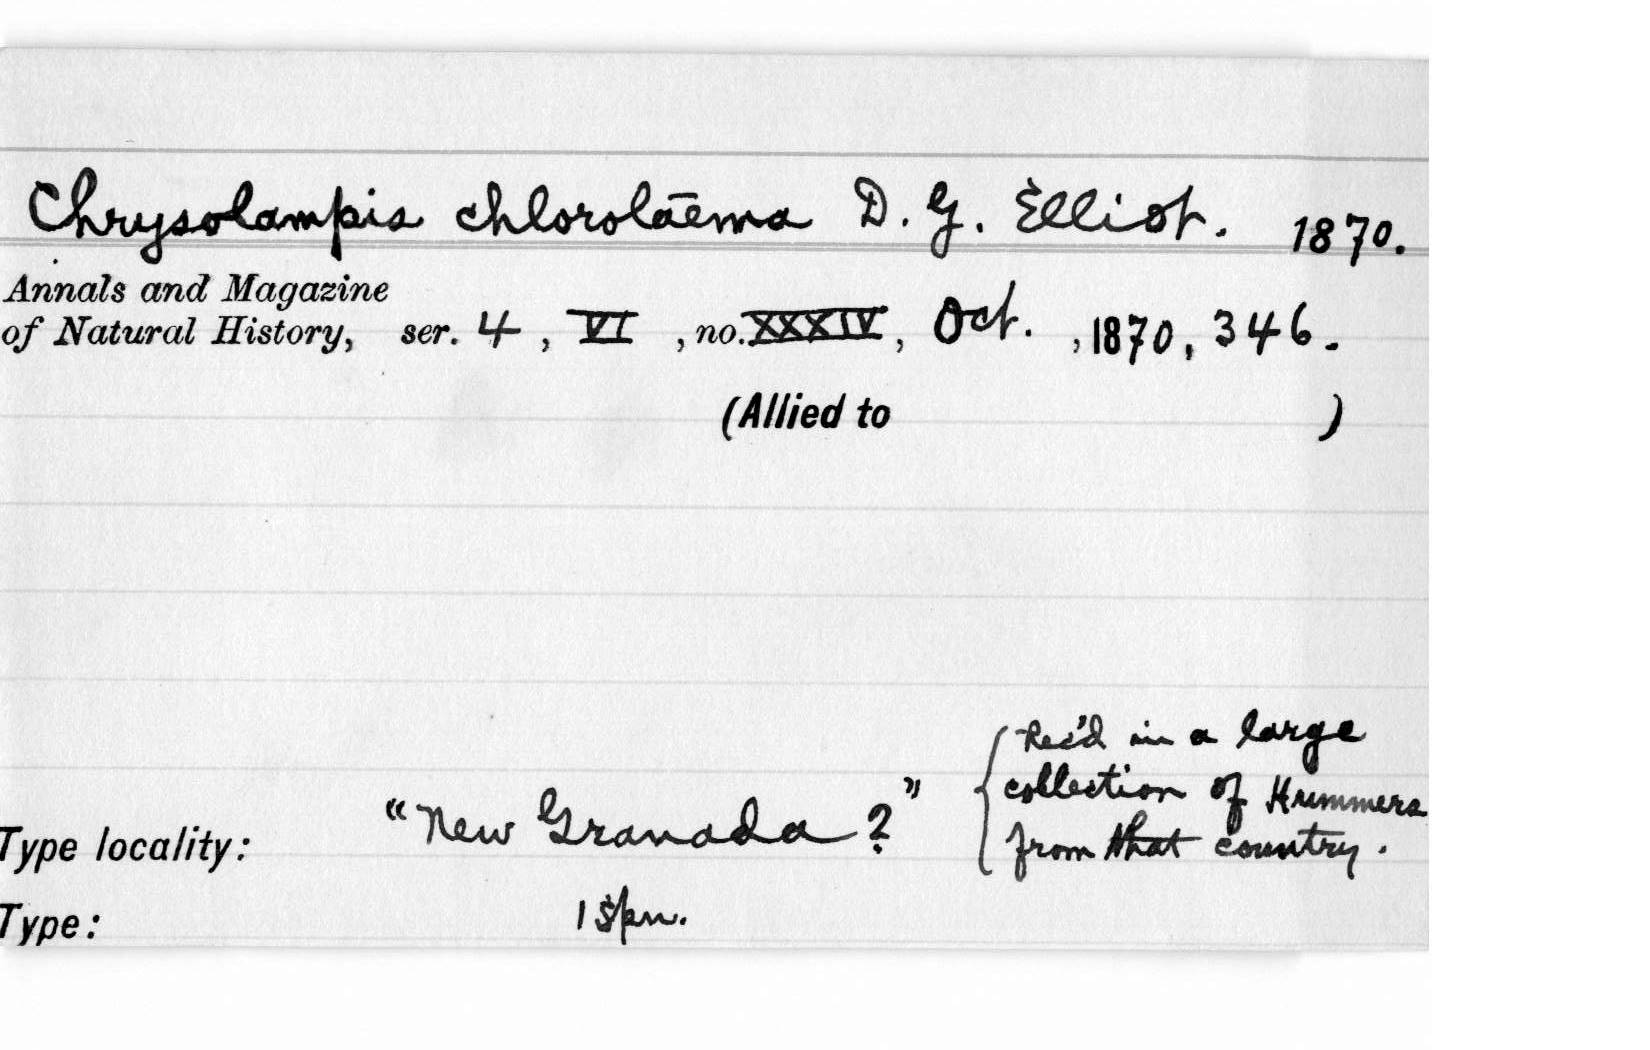 Chrysolampis chlorolāema D. G. Elliot. 1870.
Annals and Magazine
of Natural History, ser. 4, VI, no. XXXIV, Oct., 1870, 346.
(Allied to )
Rec'd in a large
collection of Hummers
from that country.
Type locality: "New Granada?"
Type: 1 spn.